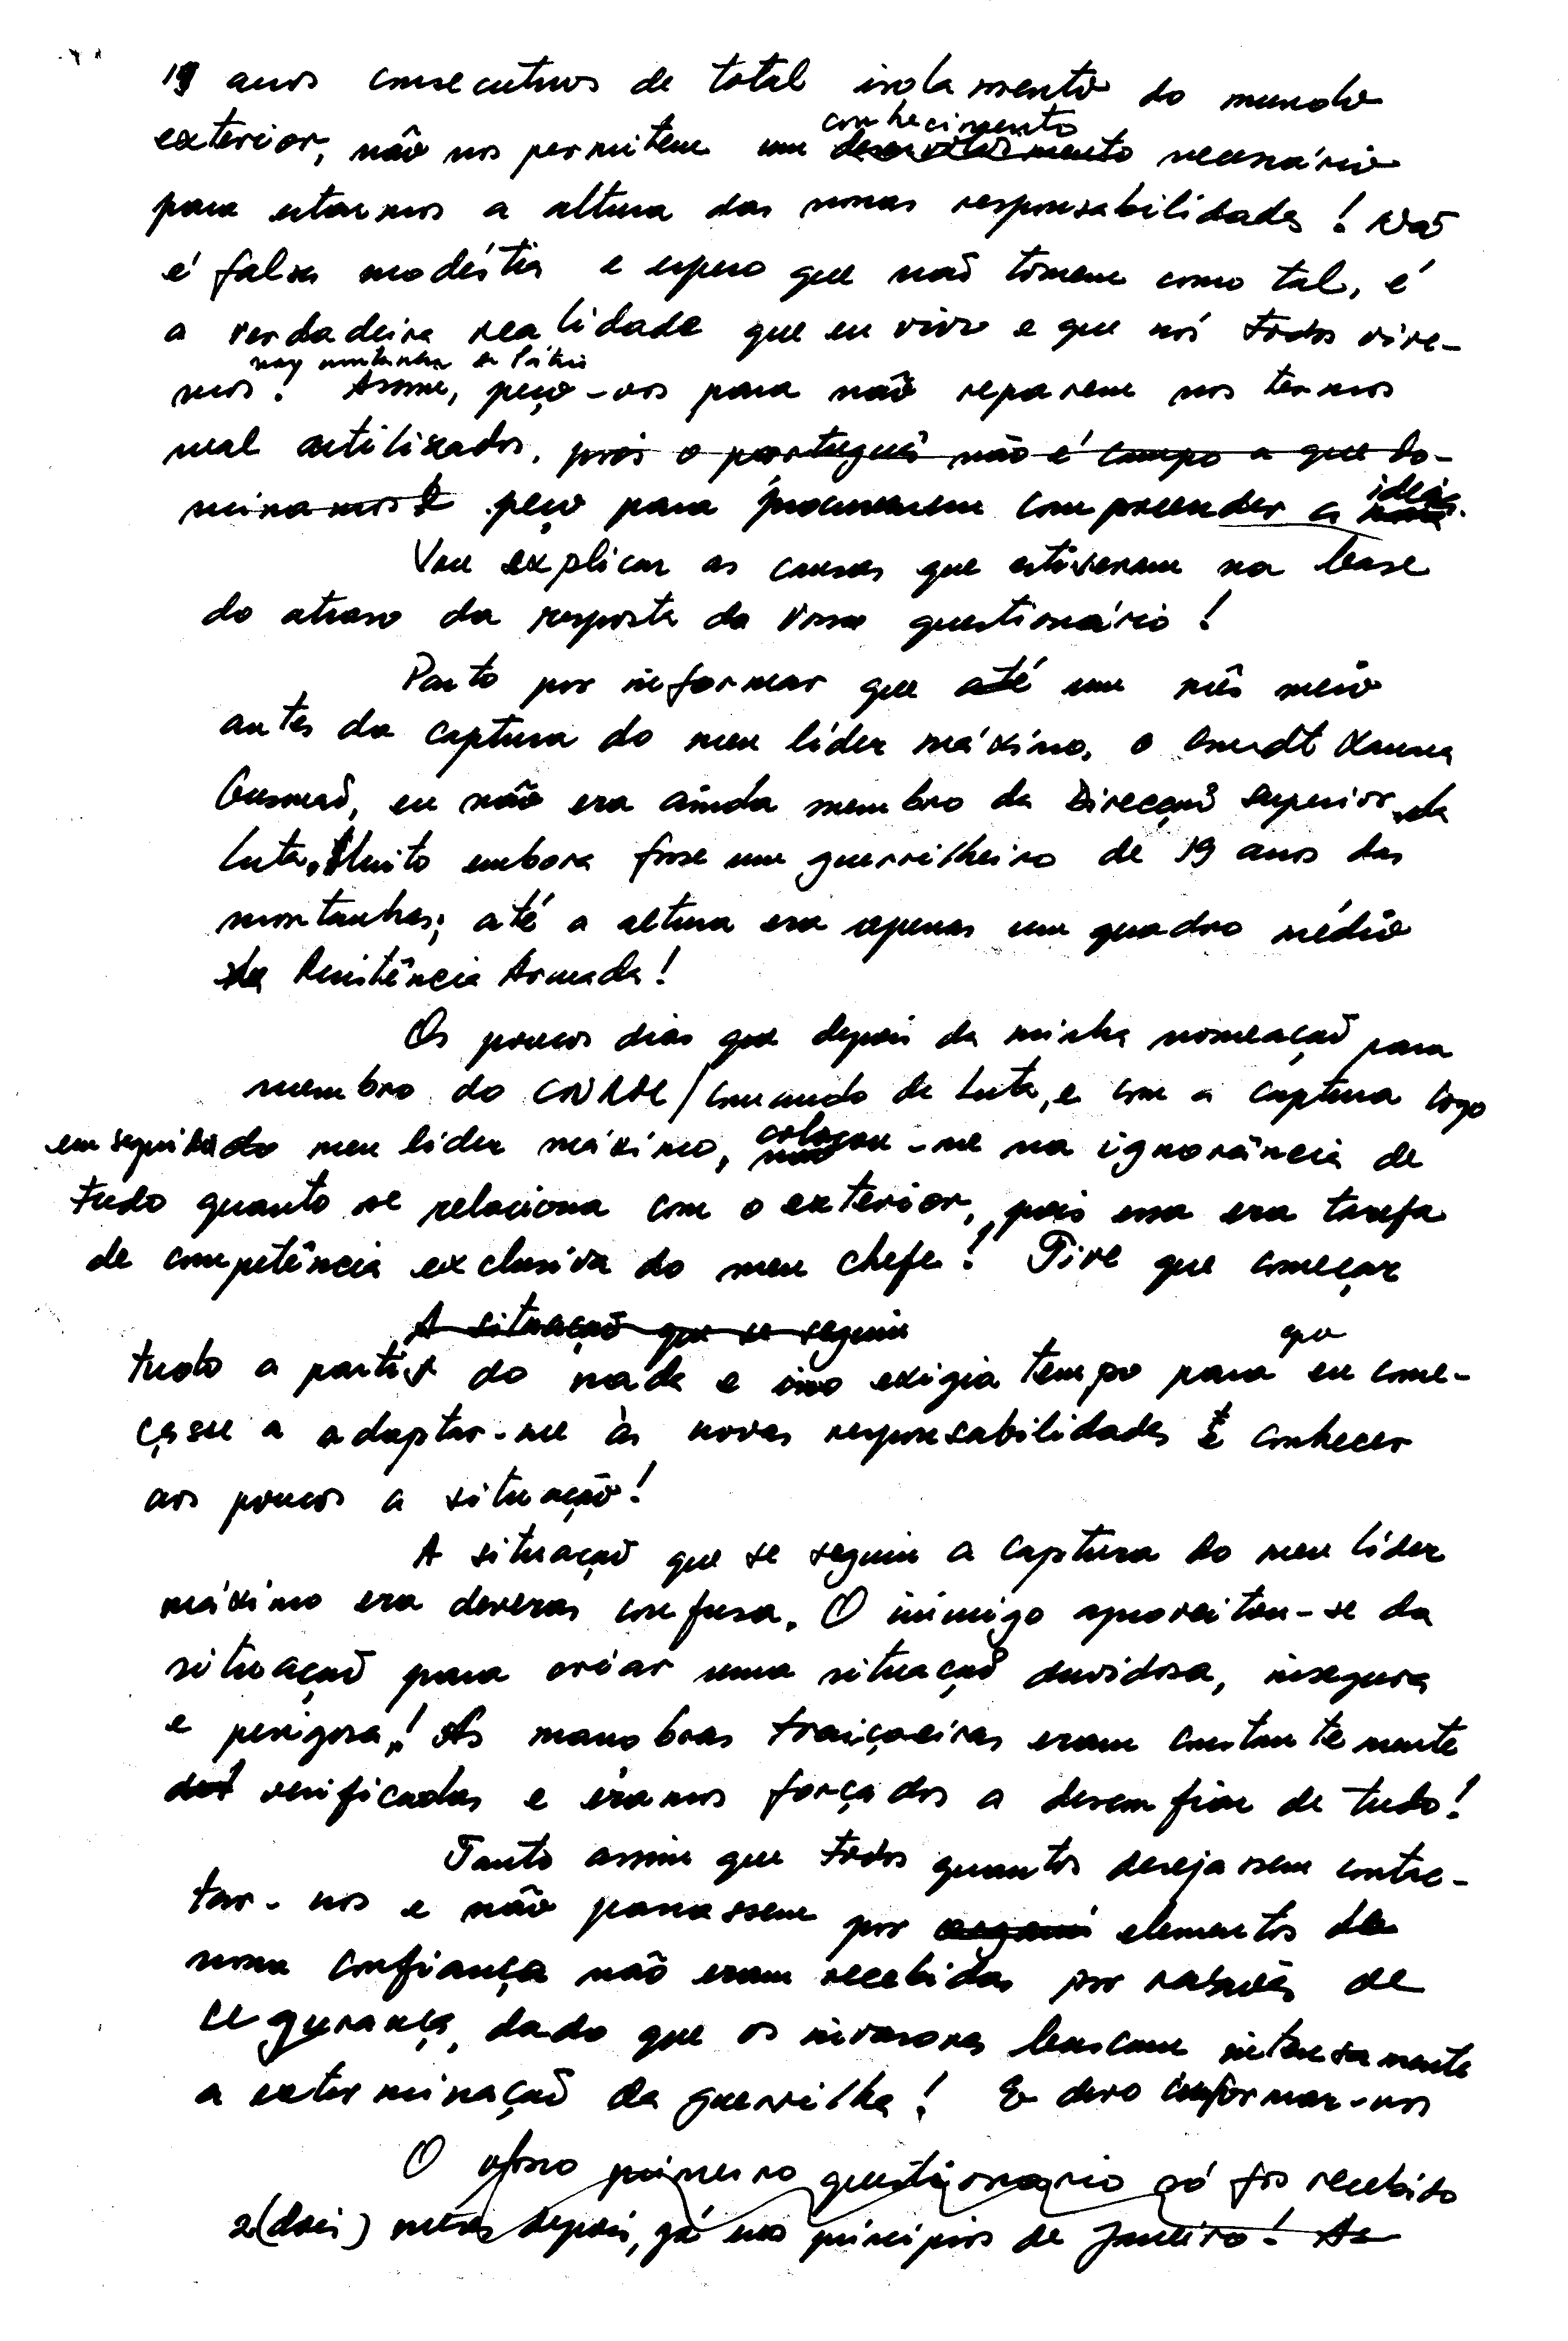 19 anos consecutivos de total isolamento do mundo
conhecimento
exterior, não nos permitem um desenvolvimento necessário
para estarmos a altura das nossas responsabilidades! Não
é falsa modéstia e espero que não tomem como tal, é
a verdadeira realidade que eu vivo e que nós todos vive-
nas montanhas da Pátria
mos! Assim, peço-vos para não reparem nos termos
mal utilizados, pois o português não é campo a que do-
ideia
minamos E peço para procurarem compreender a
Vou explicar as causas que estiveram na base
do atraso da resposta do vosso questionário!
Parto por informar que até um mês meio
antes da captura do meu líder máximo, o Cmdt Xanana
Gusmão, eu não era ainda membro da Direcção Superior da
Luta, Muito embora fosse um guerrilheiro de 19 anos das
montanhas; até a altura era apenas um quadro médio
da Resistência Armada!
Os poucos dias que depois da minha nomeação para
membro do CNRM/Comando de Luta, e com a captura logo
em seguida do meu líder máximo, colocou-me na ignorância de
tudo quanto se relaciona com o exterior, pois essa era tarefa
de competência exclusiva do meu chefe! Tive que começar
A situação que se seguiu
que
tudo a partir do nada e isso exigia tempo para eu come-
çasse a adaptar-me às novas responsabilidades e conhecer
aos poucos a situação!
A situação que se seguiu a captura do meu líder
máximo era deveras confusa. O inimigo aproveitou-se da
situação para criar uma situação duvidosa, insegura
e perigosa! As manobras traiçoeiras eram constantemente
verificadas e éramos forçados a desconfiar de tudo!
Tanto assim que todos quantos desejassem contac-
tar-nos e não passassem por elementos de
nossa confiança não eram recebidos por razões de
segurança, dado que os invasores buscam intensamente
a exterminação da guerrilha! E devo informar-vos
O vosso primeiro questionário só foi recebido
2(dois) meses depois, já nos princípios de Janeiro! As